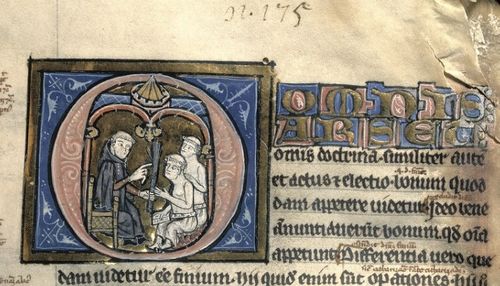 n. 175
OMNIS
ARS ET
omis doctrina. similiter aute
et actus & electio bonum quod
dam appetere uidetur. Ideo bene
ānuntiauerūt bonum. qđ oīa
appetunt. Differentia uero que
dam uidetur eē finium. hii quidem enim sūt opationes.